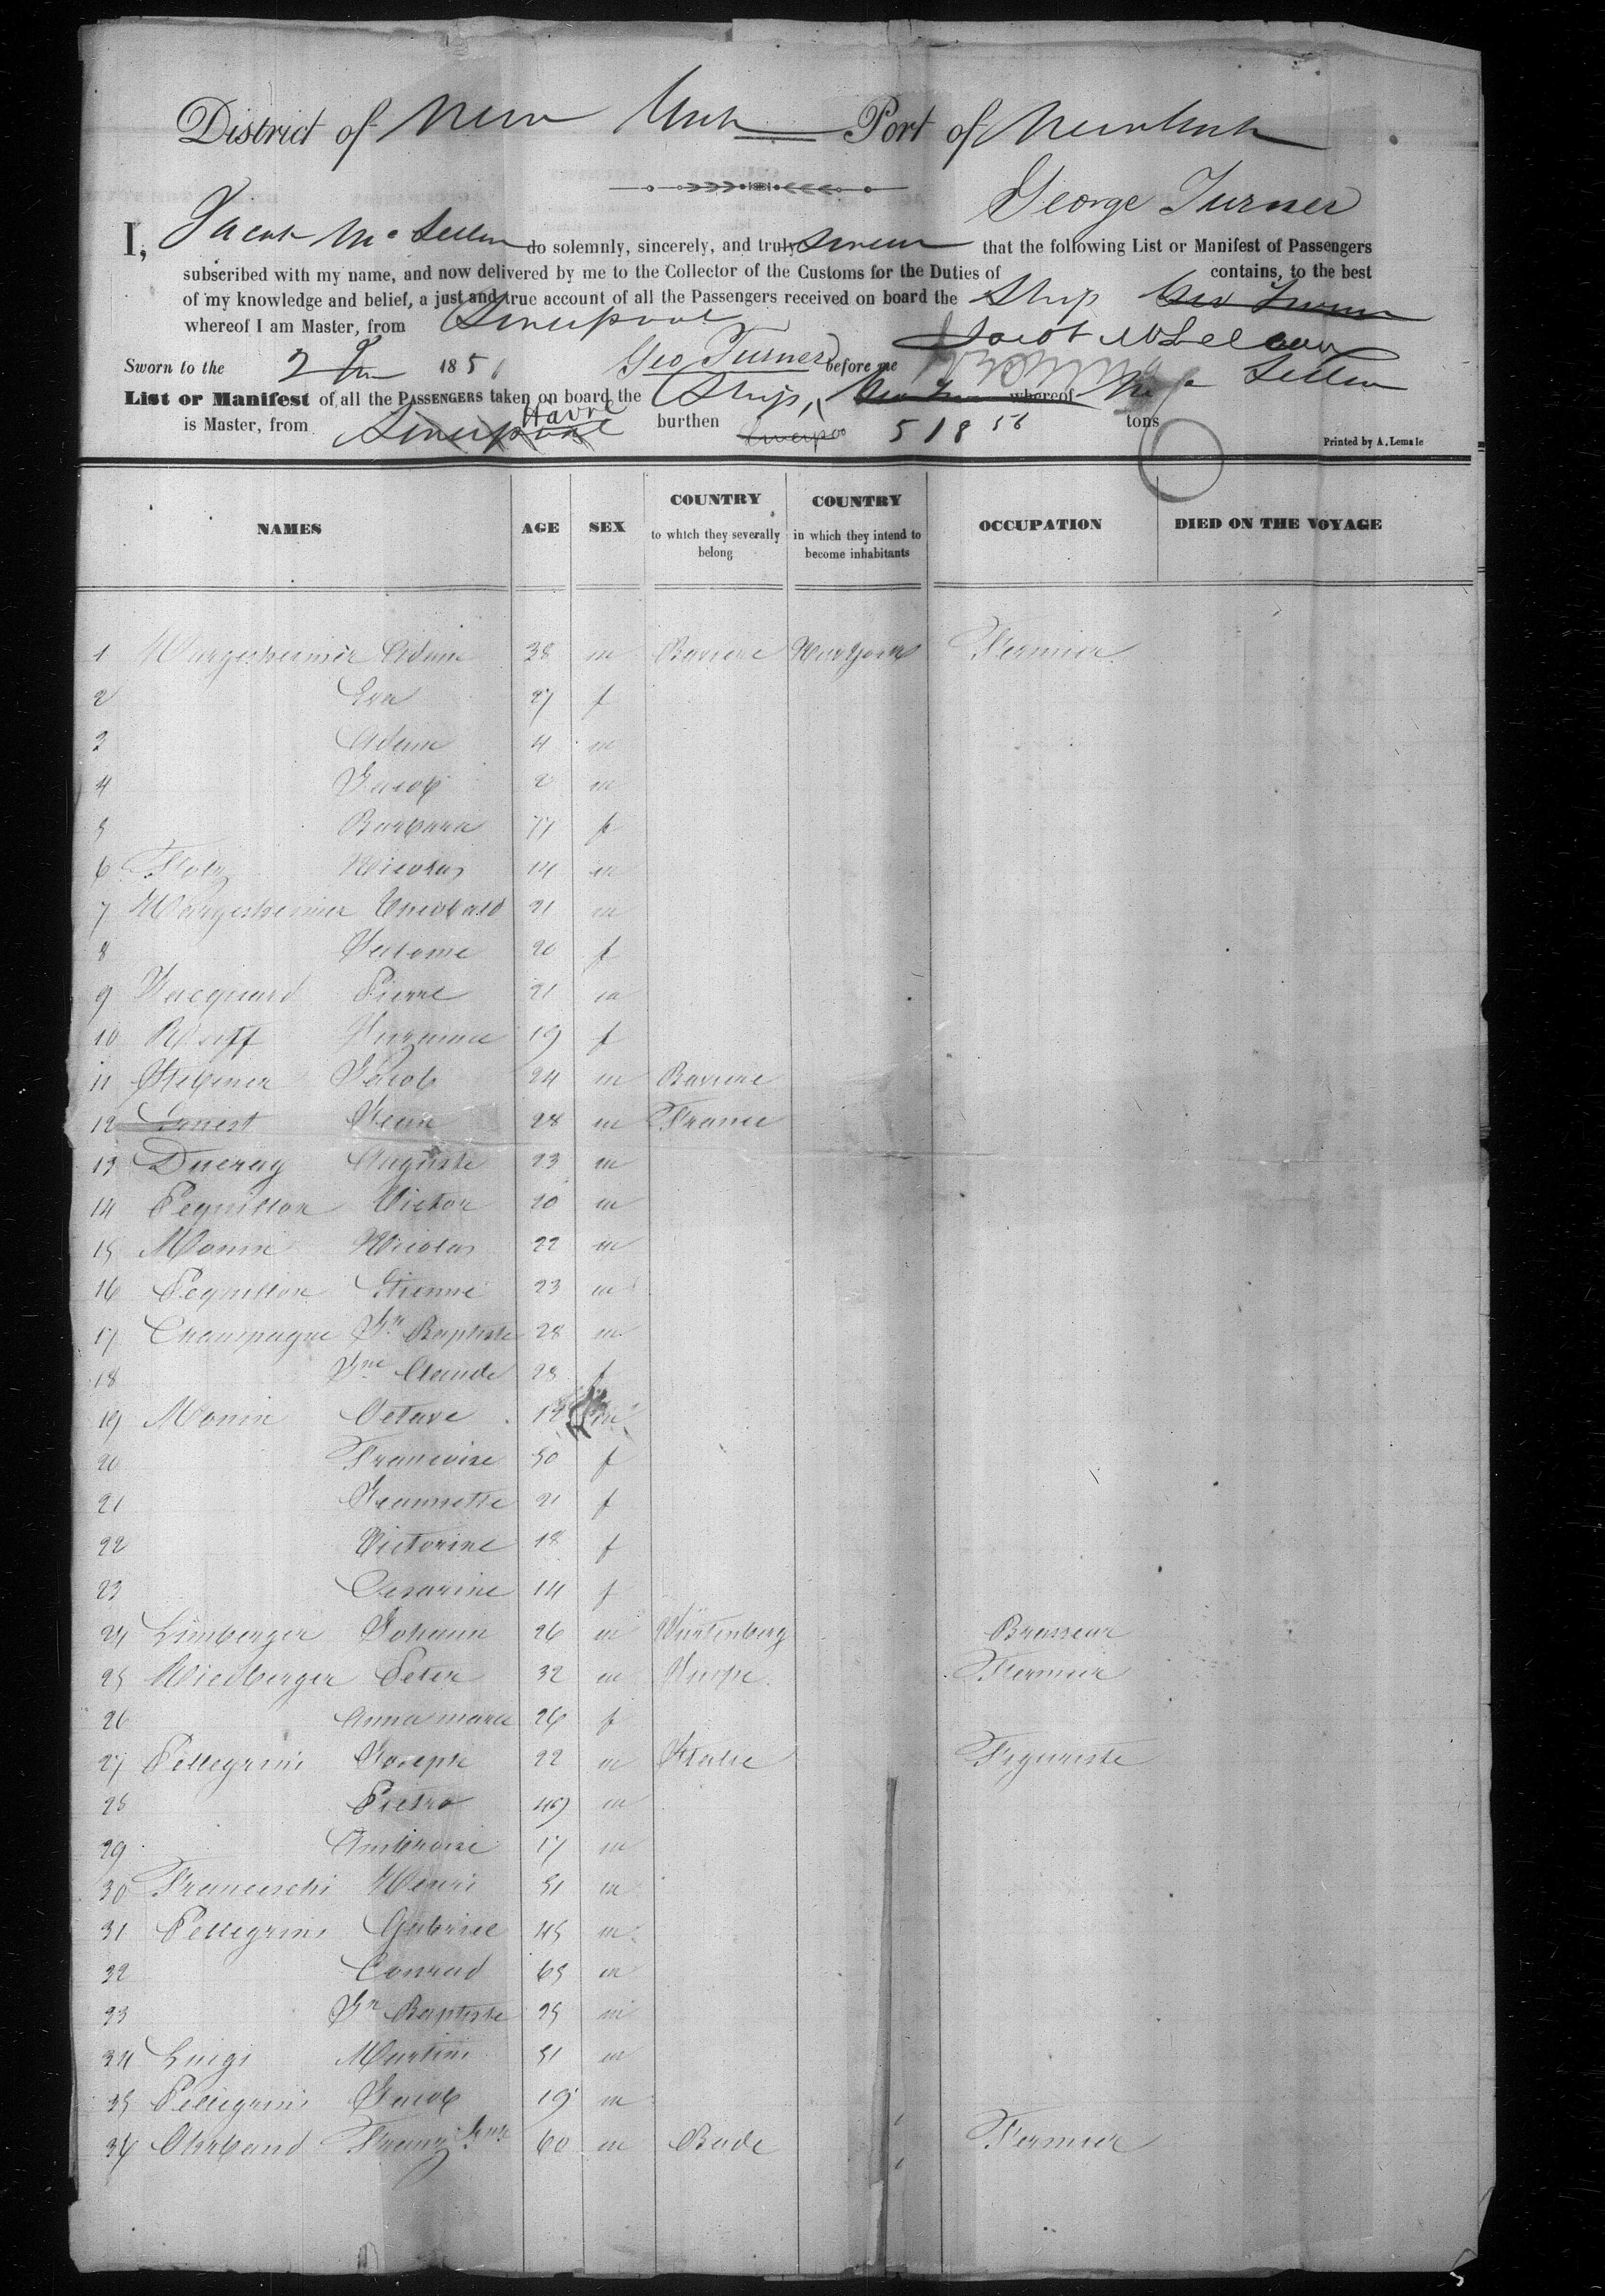 District of New York Port of New York
George Turner
I, Jacob McLellan do solemnly, sincerely, and truly swear that the following List or Manifest of Passengers
subscribed with my name, and now delivered by me to the Collector of the Customs for the Duties of contains, to the best
of my knowledge and belief, a just and true account of all the Passengers received on board the Ship Geo Turner
whereof I am Master, from Liverpool
Jacob McLellan
Sworn to the 2 Jan 1851 Geo Turner before me
List or Manifest of all the PASSENGERS taken on board the Ship, Geo Turner whereof McLellan
is Master, from Liverpool Havre burthen Liverpoo 518 56 tons
Printed by A. Lemale
NAMES AGE SEX COUNTRY to which they severally belong COUNTRY in which they intend to become inhabitants OCCUPATION DIED ON THE VOYAGE
1 Adam 38 m Baviere New York Fermier
2 Eva 27 f
3 Adam 4 m
4 Jacob 2 m
5 Barbara 77 f
6 Nicolas 14 m
7 Theobald 21 m
8 Salome 20 f
9 Jacquard Pierre 21 m
10 19 f
11 Jacob 24 m Baviere
12 Ernest Jean 28 m France
13 Ducray Auguste 23 m
14 Pegnillon Victor 20 m
15 Monin Nicolas 22 m
16 Pegnillon Etienne 23 m
17 Champagne Jn Baptiste 28 m
18 Jne Claude 28 f
19 Monin Octave 12 m
20 Francoise 50 f
21 Jeannette 21 f
22 Victorine 18 f
23 Cesarine 14 f
24 Limberger Johann 26 m Würtenberg Brasseur
25 Niedberger Peter 32 m Fermier
26 Anna maria 26 f
27 Pellegrini Joseph 22 m Italie Figuriste
28 Pietro 49 m
29 Ambroise 17 m
30 Franceschi Henri 51 m
31 Pellegrini Gabriel 45 m
32 Conrad 65 m
33 Jn Baptiste 25 m
34 Luigi Martini 51 m
35 Pellegrini Jacob 19 m
36 Franz 60 m Bade Fermier